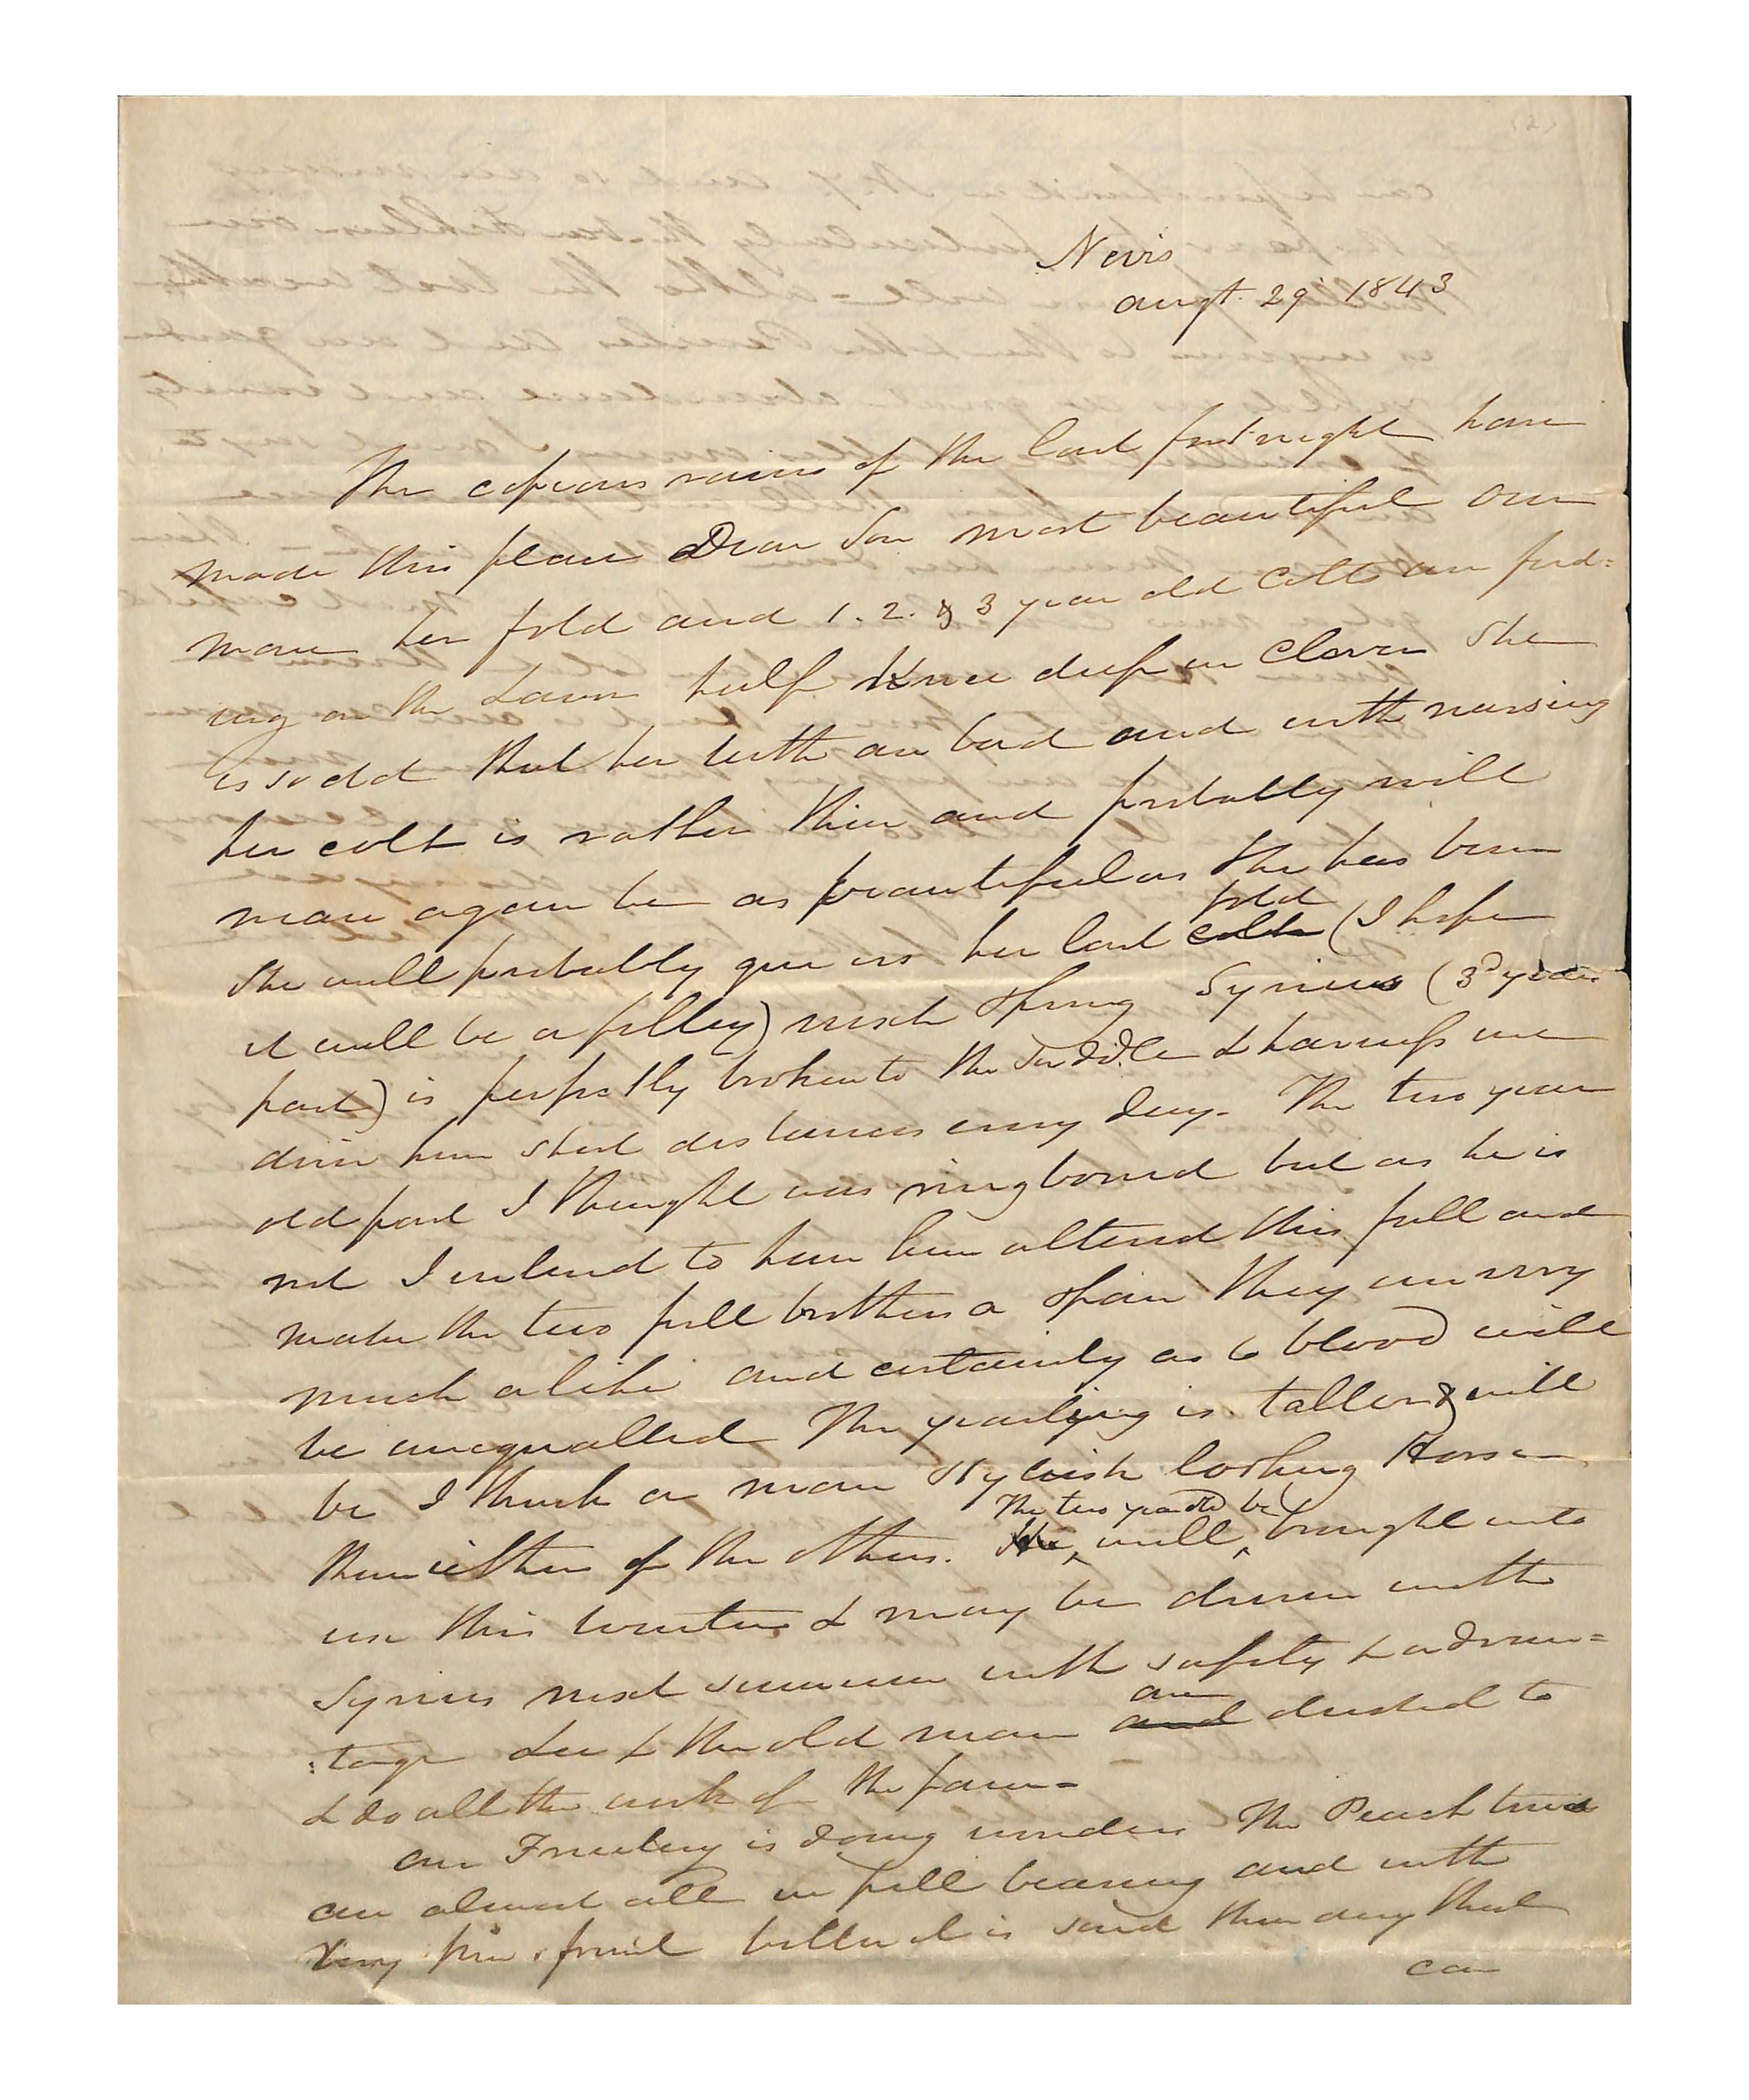 Nevis
augt. 29 1843
The copious rains of the last fortnight have
made this place Dear Son most beautiful Our
mare her fold and 1. 2. & 3 year old Colts are feed=
ing on the Lawn half knee deep in Clover She
is so old that her teeth are bad and with nursing
her colt is rather thin and probably will
never again be as beautiful as she has been
She will probably give us her last <s>colt</s> fold (I hope
it will be a filley) next Spring Syrius (3d year
past) is perfectly broken to the Saddle & harness we
drive him short distances every day - The two year
old past I thought was ringboned but as he is
not I intend to have him altered this fall and
make the two full brothers a span They are very
much alike and certainly as to blood will
be unequalled The yearling is taller & will
be I think a more stylish looking Horse
than either of the others. <s>He</s> The two year old will be brought into
use this winter & may be driven with
Syrius next summer with safety & advan=
:tage Lee & the old mare <s>and</s> are destined to
& do all the work of the farm -
Our Fruitery is doing wonders The Peach trees
are almost all in full bearing and with
very fine fruit better it is said than any that
can